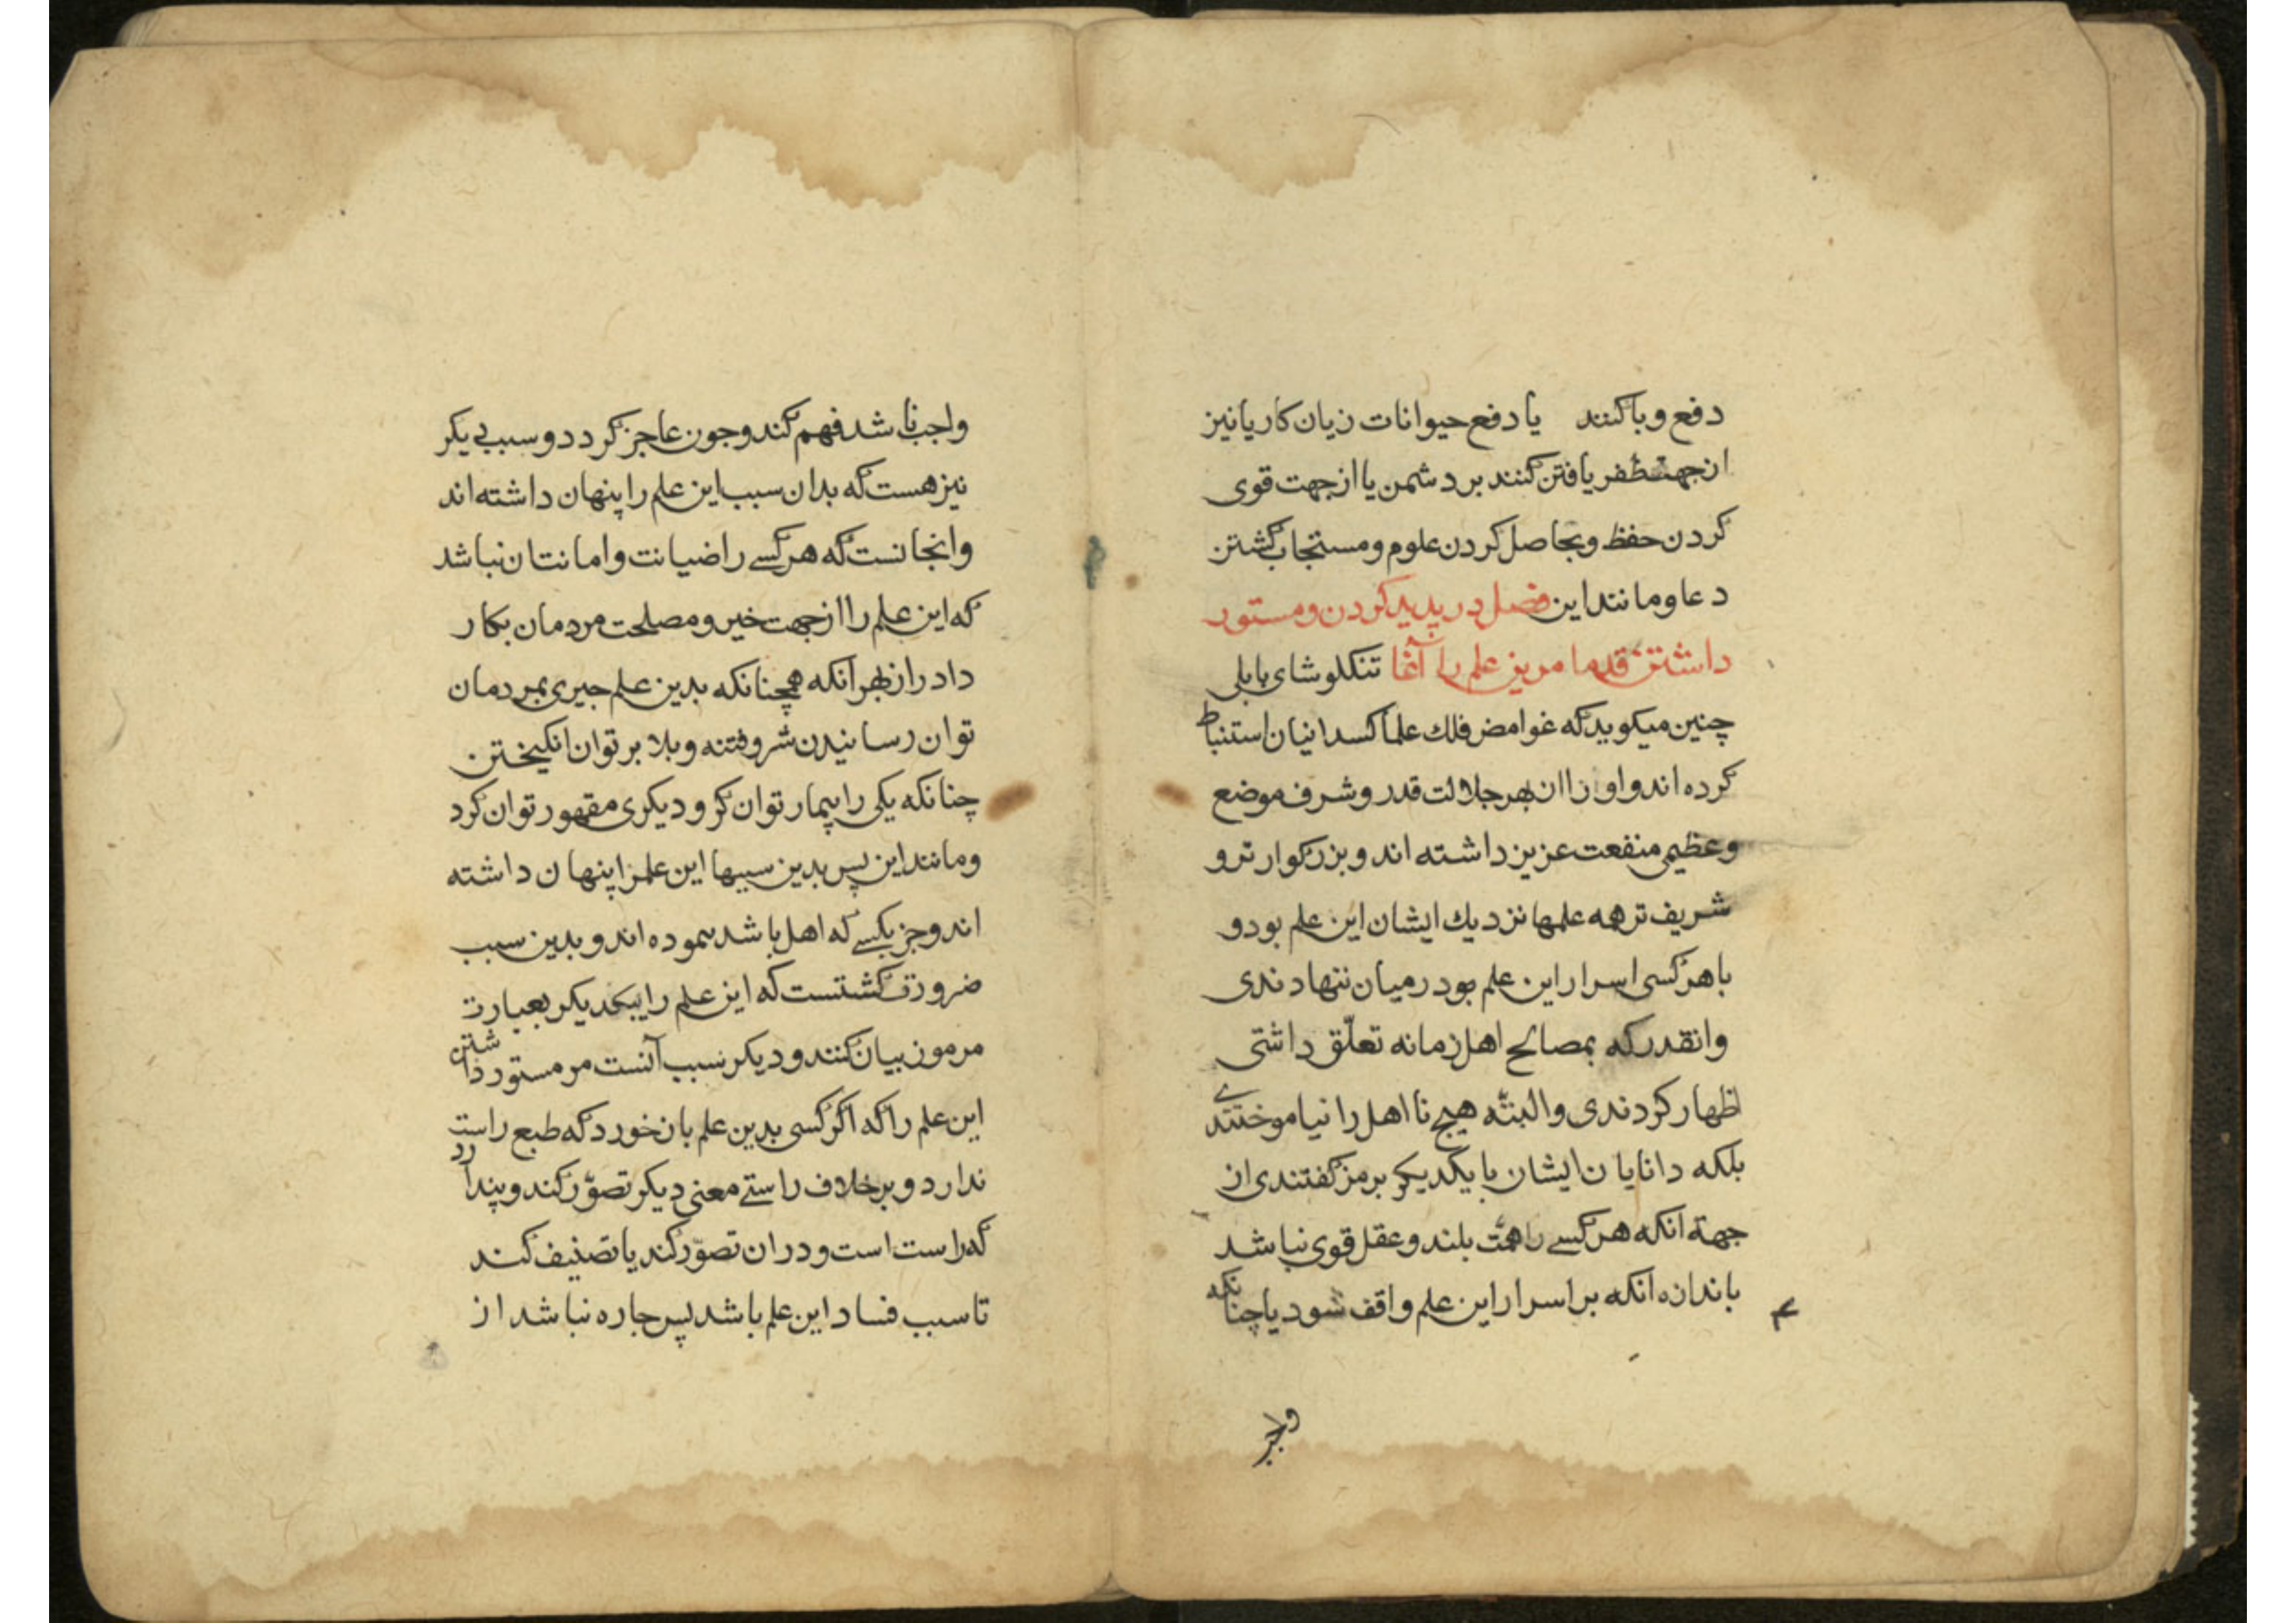 دفع وبا کنند یا دفع حیوانات زیان کار یا نیز
از جهت ظفر یافتن کنند بر دشمن یا از جهت قوی
کردن حفظ و بحاصل کردن علوم و مستجاب کشتن
دعا و مانند این فصل در پدید کردن و مستور
داشتن قدما مرین علم را آغا تنکلوشای بابلی
چنین میکوید که غوامض فلك علما کسدانیان استنباط
کرده اند و اورا از بهر جلالت قدر و شرف موضع
و عظیم منفعت عزیز داشته اند و بزرکوارتر و
شریف تر همه علمها نزدیك ایشان این علم بود و
با هر کسی اسرار این علم بود رمیان ننهادندی
وانقدر که بمصالح اهل زمانه تعلّق داشتی
اظهار کردندی والبتّه هیچ نا اهل را نیاموختندے
بلکه دانایان ایشان با یکدیکر برمز کفتندی از
جهة انکه هر کسے را همّت بلند و عقل قوی نباشد
باندازه انکه بر اسرار این علم واقف شود یا چنانکه
واجب باشد فهم کند و جون عاجز کردد و سبب دیکر
نیز هست که بدان سبب این علم را پنهان داشته اند
وانجانست که هر کسے را ضیانت و امانت ان نباشد
که این علم را از جهت خیر و مصلحت مردمان بکار
دارد از بهر آنکه همچنانکه بدین علم جیری بمردمان
توان رسانیدن شر و فتنه و بلا بر توان انکیختن
چنانکه یکی را بیمار توان کر و دیکری مقهور توان کرد
و مانند این پس بدین سببها این علم را پنهان داشته
اند و جز بکسے که اهل باشد ننموده اند و بدین سبب
ضرورت کشتست که این علم را بیکدیکر بعبارت
مرموز بیان کنند و دیکر سبب آنست مر مستور داشتن
این علم را که اکر کسی بدین علم بان خورد که طبع راست
ندارد و بر خلاف راستے معنی دیکر تصوّر کند و پندارد
که راست است و در ان تصوّر کند یا تصنیف کند
تا سبب فساد این علم باشد پس جاره نباشد از